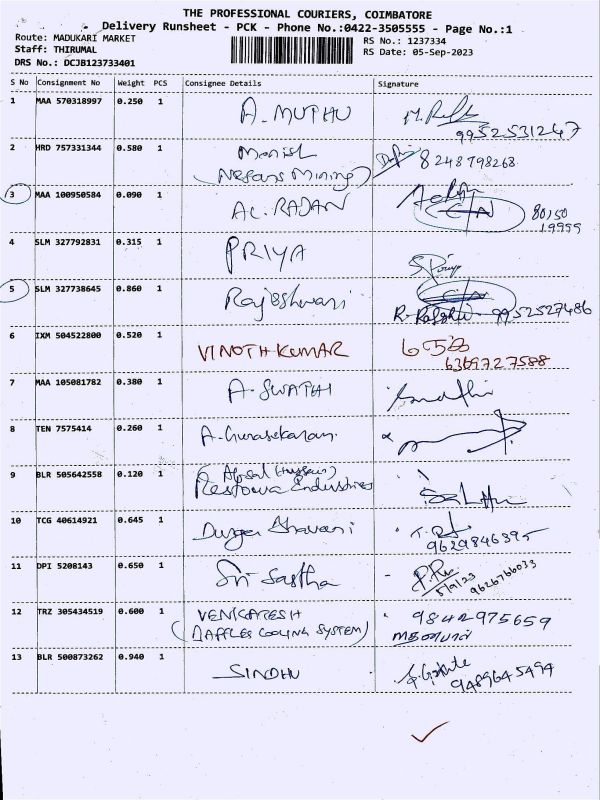 THE PROFESSIONAL COURIERS, COIMBATORE
Delivery Runsheet - PCK - Phone No.:0422-3505555 - Page No.:1
Route: MADUKARI MARKET
RS No.: 1237334
Staff: THIRUMAL
RS Date: 05-Sep-2023
DRS No.: DCJB123733401
S No Consignment No Weight PCS Consignee Details Signature
1 MAA 570318997 0.250 1 A. MUTHU
9952531247
2 HRD 757331344 0.580 1 Monish 8248798268
Mining)
3 MAA 100950584 0.090 1 AL. RADAN
80150
19555
4 SLM 327792831 0.315 1 PRIYA
5 SLM 327738645 0.860 1 Rajeshwari
9952527486
6 IXM 504522800 0.520 1 VINOTH KUMAR
6369727588
7 MAA 105081782 0.380 1 A. SWATHI
8 TEN 7575414 0.260 1 A. Gunasekaran.
9 BLR 505642558 0.120 1
Industries
10 TCG 40614921 0.645 1 Durga Bhavani
9629846395
11 DPI 5208143 0.650 1 Sri Sastha
5/9/23 9626766033
12 TRZ 305434519 0.600 1 VENKATESH 9842975659
(RAFFLES COOLING SYSTEM)
13 BLR 500873262 0.940 1 SINDHU
9489645494